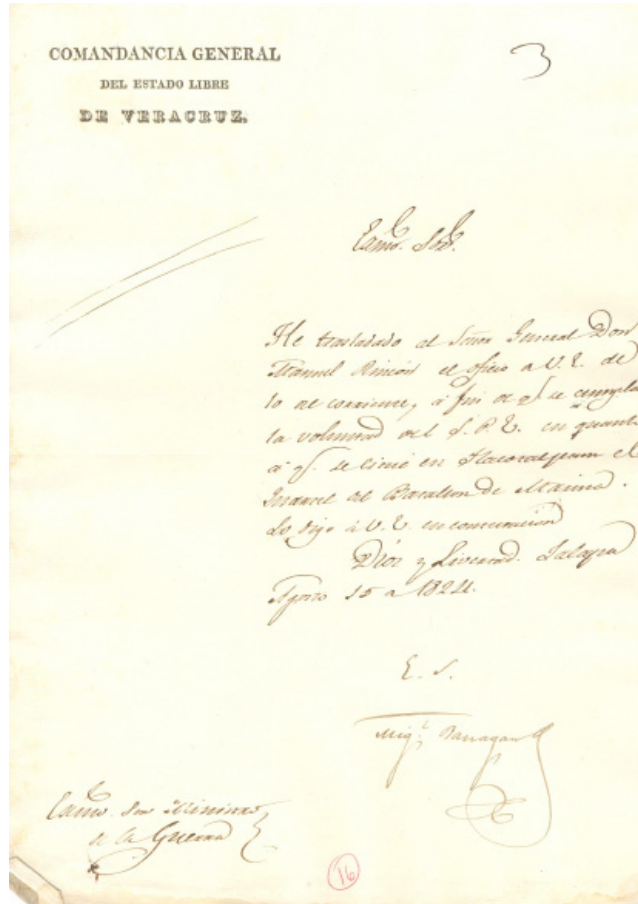 COMANDANCIA GENERAL
DEL ESTADO LIBRE
DE VERACRUZ.
3
Exmo. Sor.
He trasladado al Señor General Don
Manuel Rincón el oficio de V. E. de
10 del corriente, á fin de qe. se cumpla
la voluntad del S. P. E. en quanto
á qe. se en Tlacotalpam el
de Batallon de Marina.
Lo digo á V. E. en contestacion
Dios y Livertad. Jalapa
Agosto 15 de 1824.
E. S.
Migl. Barragan
Exmo. Sor Ministro
de la Guerra
16